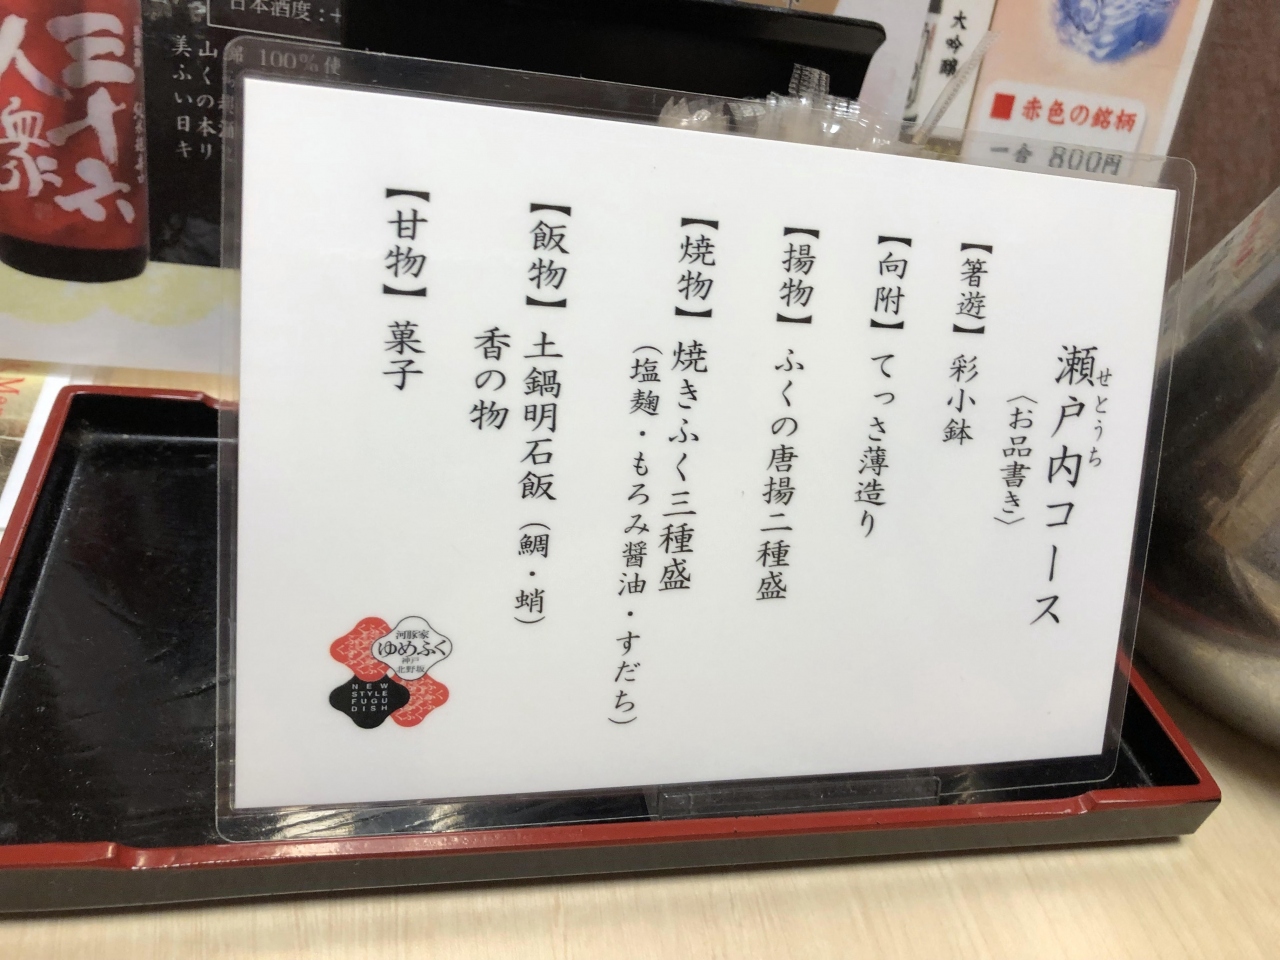 瀬戸内コース
せとうち
〈お品書き〉
【箸遊】 彩小鉢
【向附】 てっさ薄造り
【揚物】 ふくの唐揚二種盛
【焼物】 焼きふく三種盛
(塩麹・もろみ醤油・すだち)
【飯物】 土鍋明石飯(鯛・蛸)
香の物
【甘物】 菓子
河豚家
ゆめふく
神戸
北野坂
NEW
STYLE
FUGU
DISH
大吟醸
■赤色の銘柄
一合 800円
日本酒度:+
100%使
山くの本リ
美ふい日キ
三十六
人衆